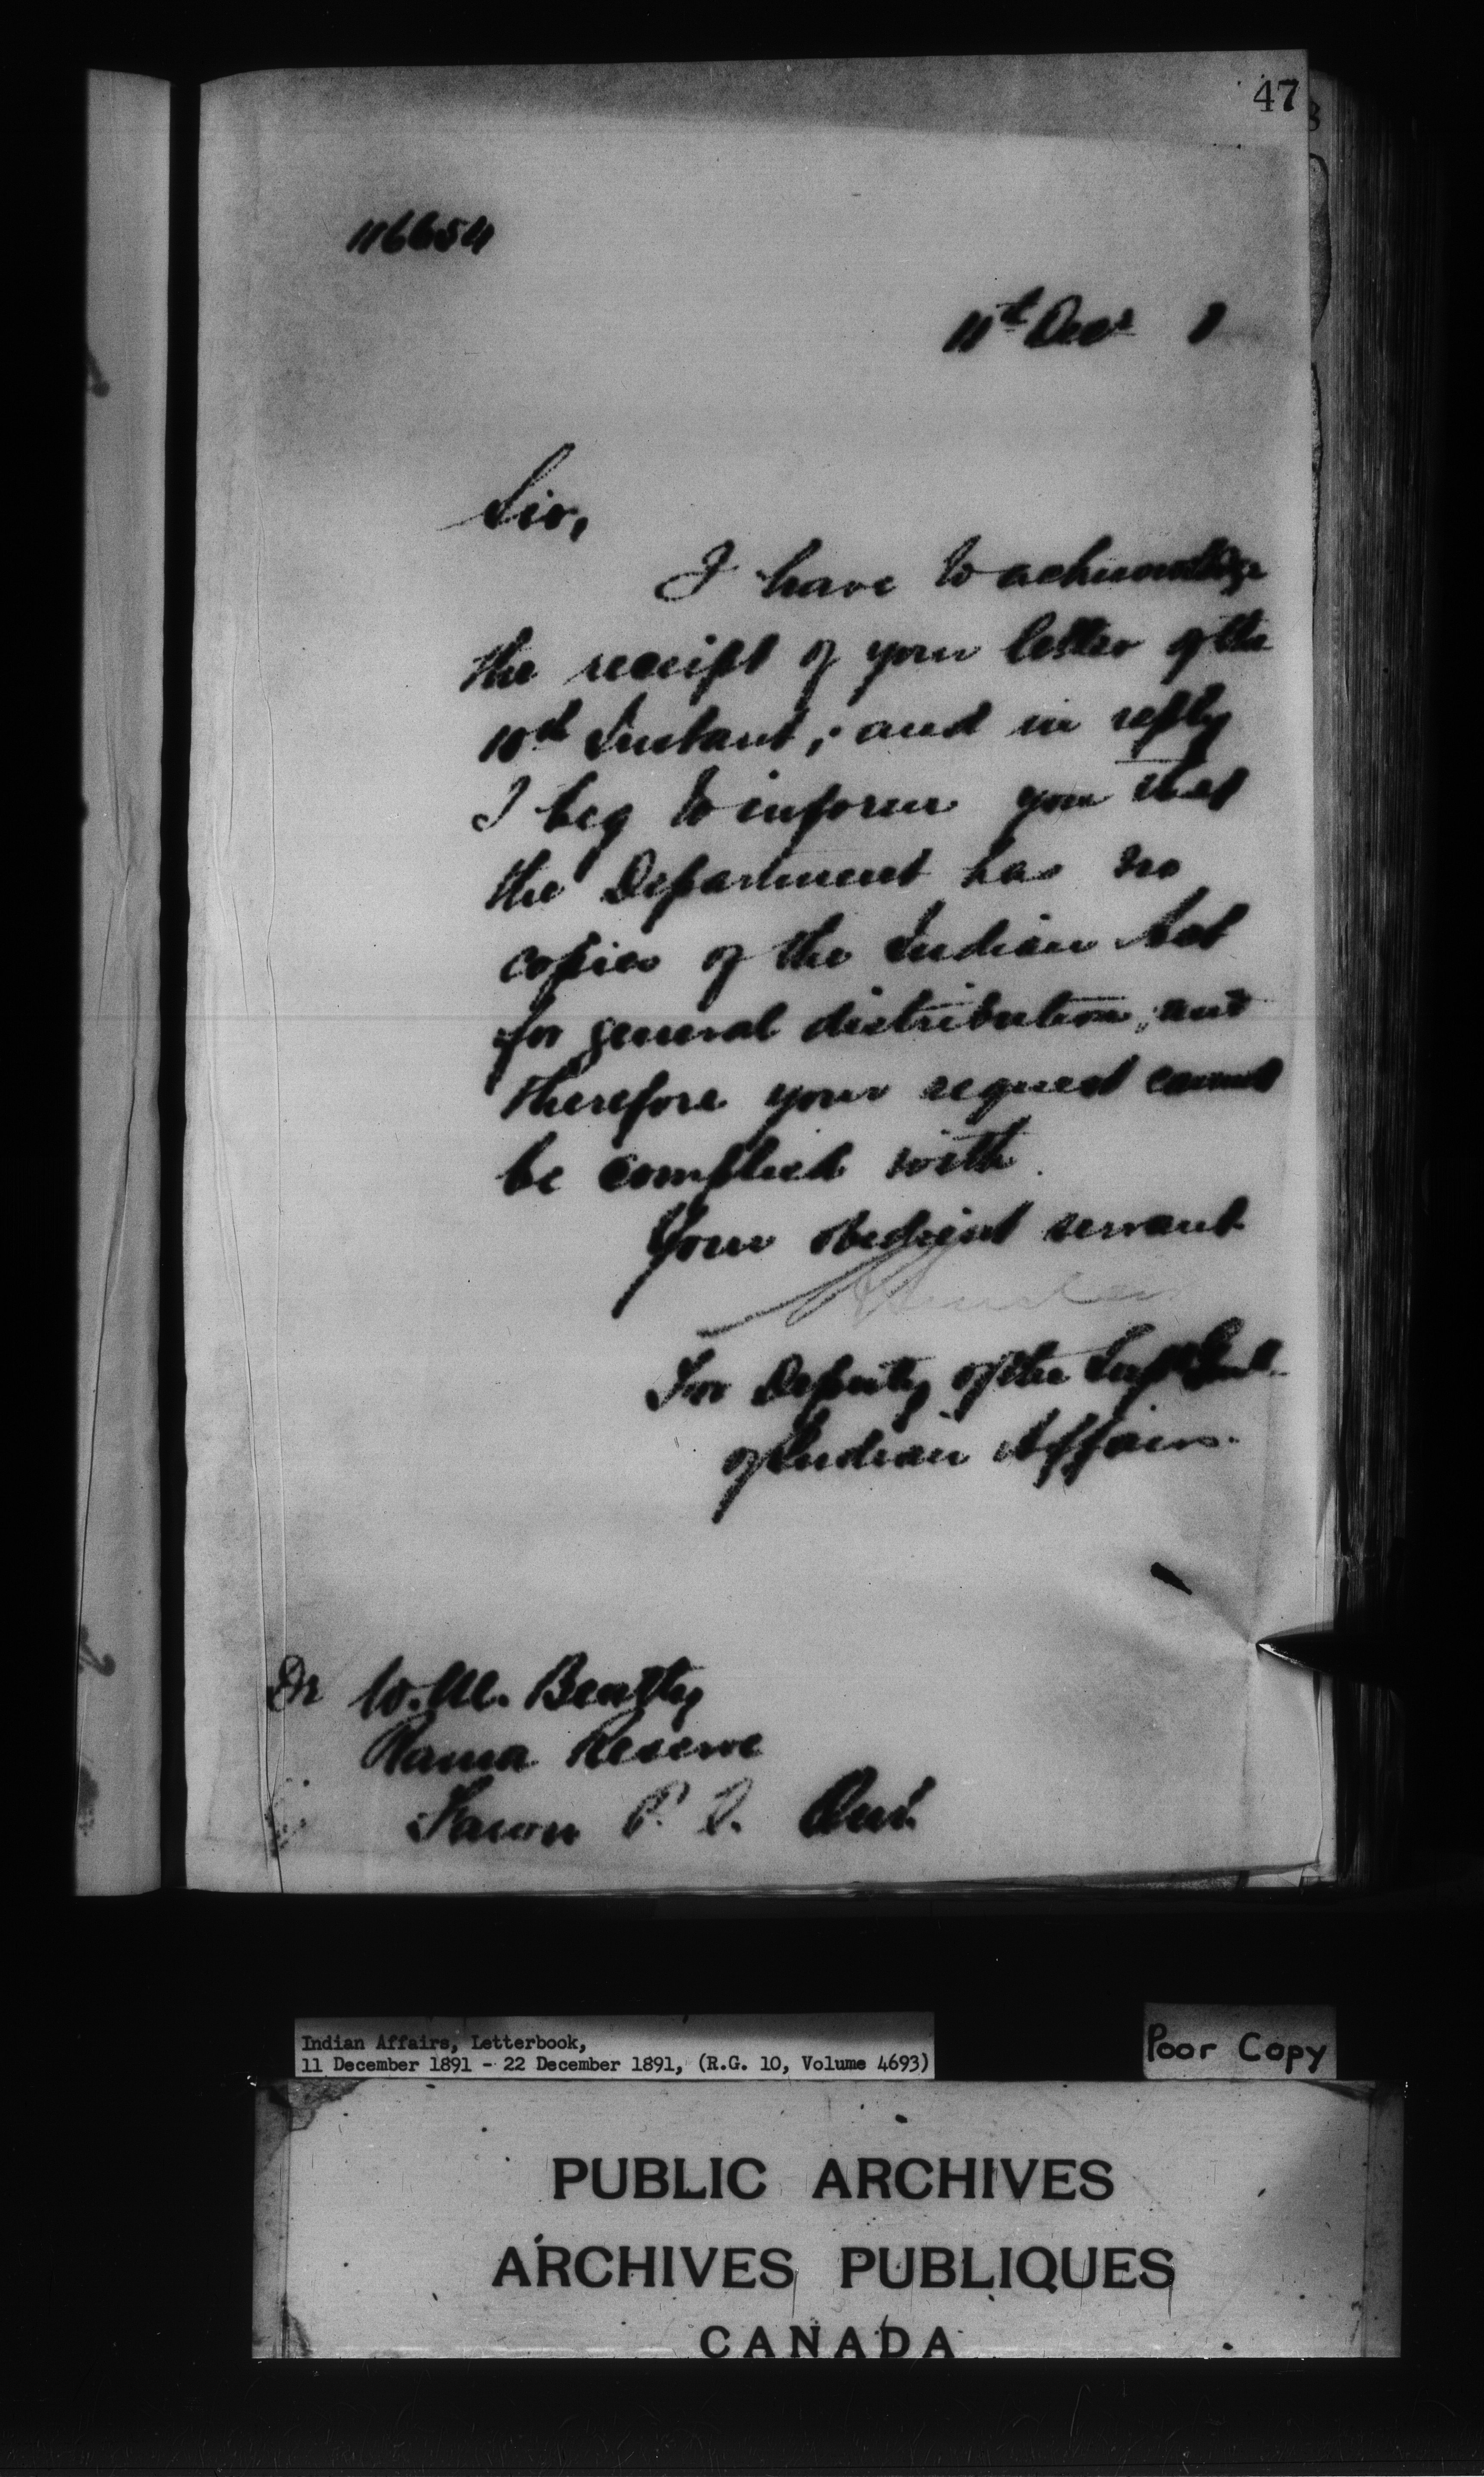 47
116654
11th Decr 1
Sir,
I have to acknowledge
the receipt of your letter of the
10th Instant, and in reply
I beg to inform you that
the Department has no
copies of the Indian Act
for general distribution, and
therefore your request cannot
be complied with.
Your obedient servant
For Deputy of the Supt Genl
of Indian Affairs.
Dr W.M. Beatty
Rama Reserve
P.O. Ont.
Indian Affairs, Letterbook,
11 December 1891 - 22 December 1891, (R.G. 10, Volume 4693)
Poor Copy
PUBLIC ARCHIVES
ARCHIVES PUBLIQUES
CANADA